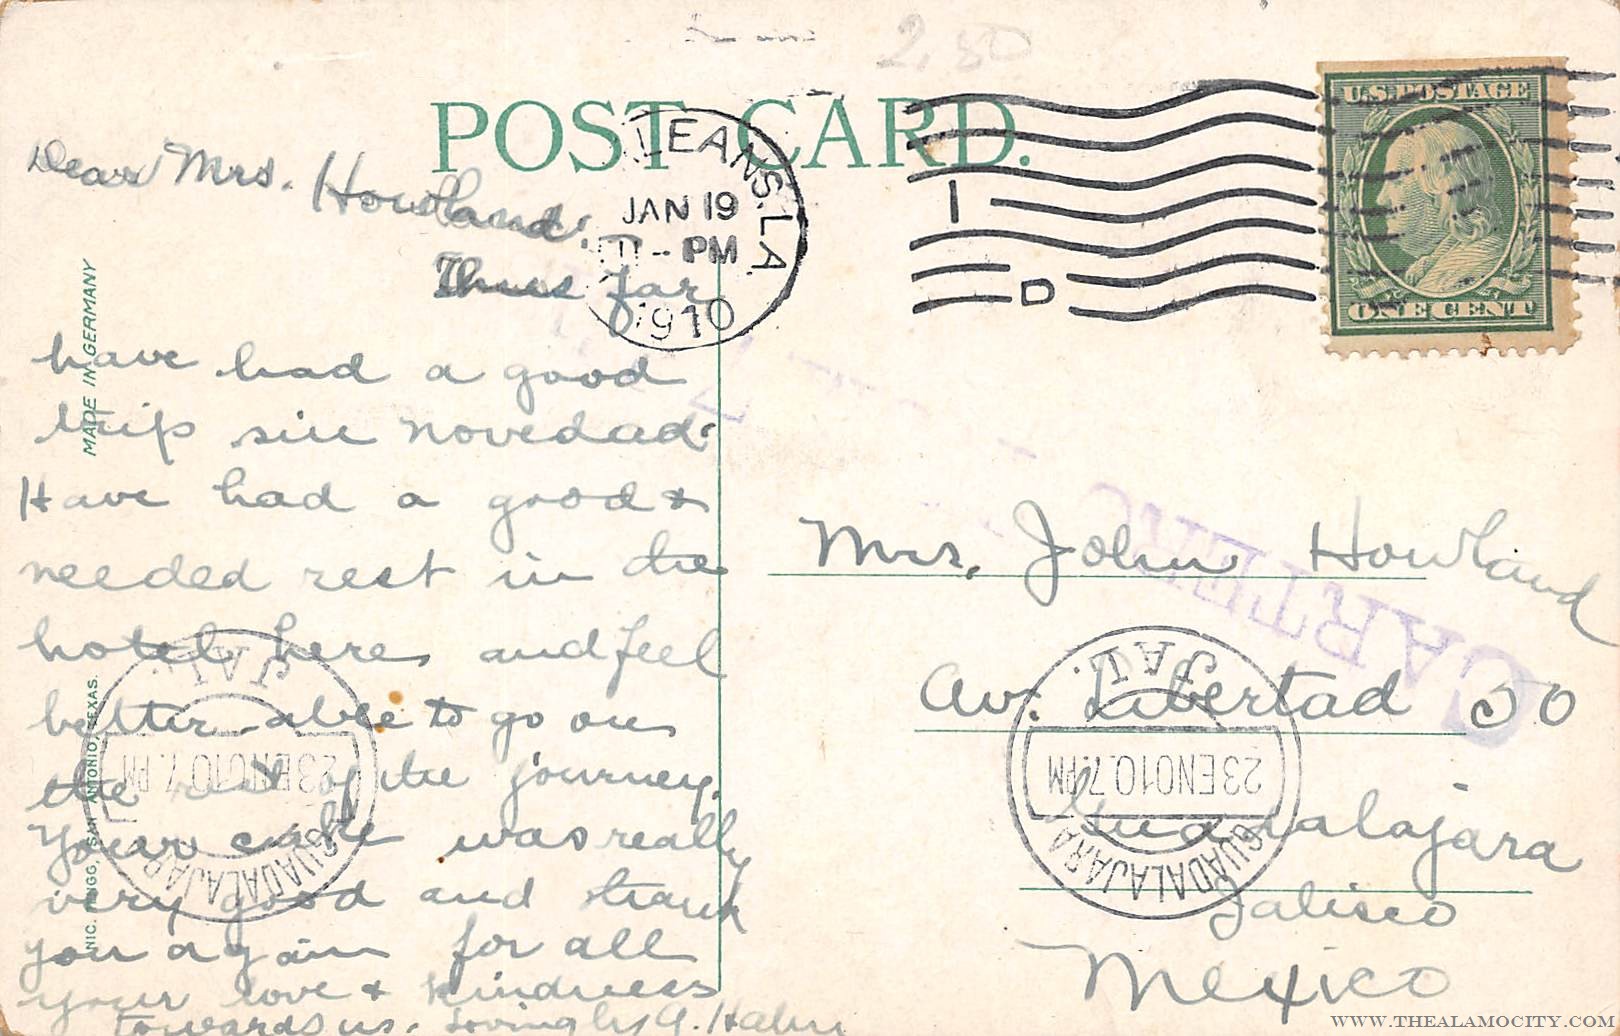 2,50
POST CARD.
LEANS. LA
JAN 19
11 - PM
1910
1
D
U.S. POSTAGE
ONE CENT
Dear Mrs. Howland:
Thus far
have had a good
trip sin novedad.
Have had a good &
needed rest in the
hotel here, and feel
better able to go on
the rest of the journey.
Your cake was really
very good and thank
you again for all
your love & kindness
towards us. Lovingly A. Hahn
MADE IN GERMANY
NIC. TENGG, SAN ANTONIO, TEXAS.
GUADALAJARA
23 ENO 10.7.PM
JAL.
CARTERO
7
Mrs. John Howland
Av. Libertad 50
Guadalajara
Jalisco
Mexico
GUADALAJARA
23 ENO 10.7.PM
JAL.
WWW.THEALAMOCITY.COM